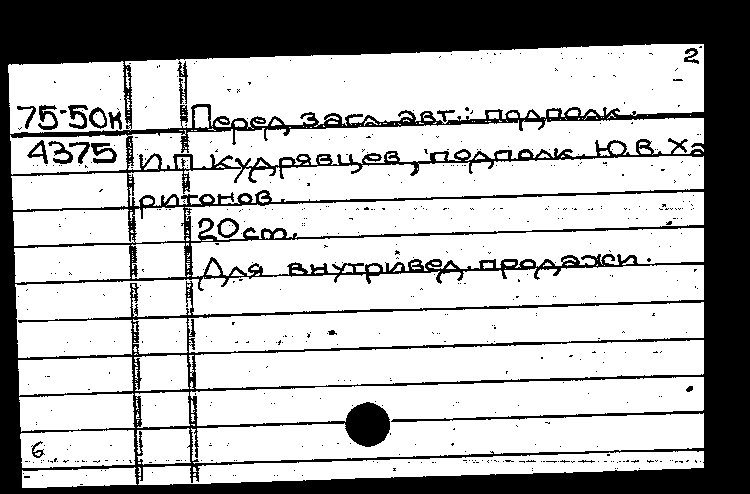 2
75-50к Перед загл. авт.: подполк.
4375 И.П. Кудрявцев, подполк. Ю.В. Ха
ритонов.
20 cm.
Для внутривед. продажи.
6